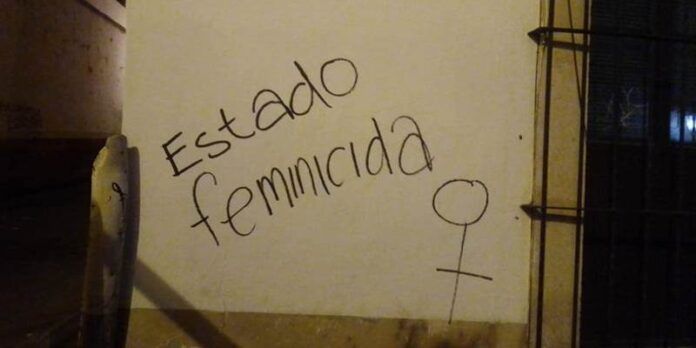 Estado
feminicida